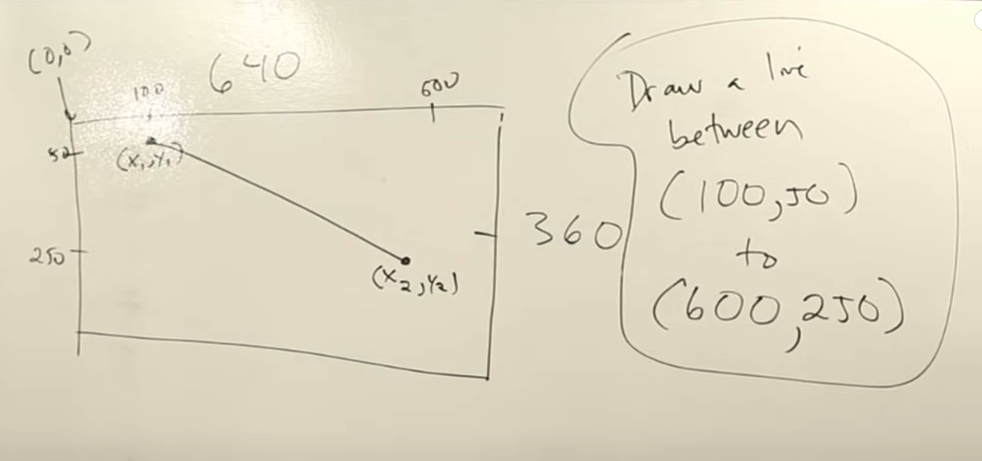 (0,0)
640
100
600
50
(x₁,y₁)
250
(x₂,y₂)
360
Draw a line
between
(100,50)
to
(600,250)